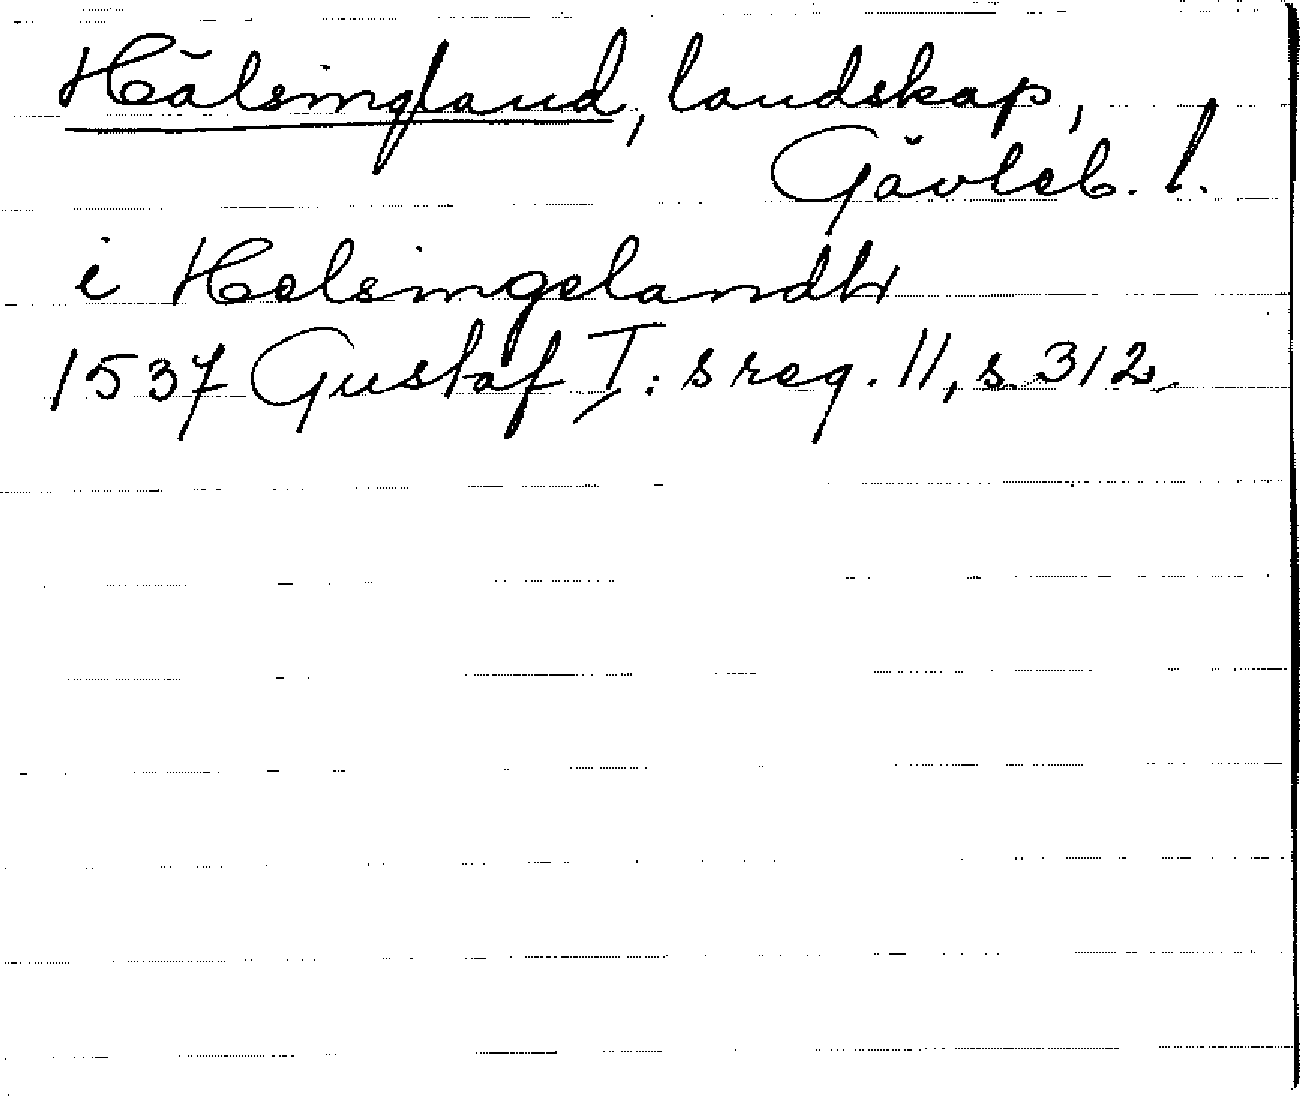 Hälsingland, landskap,
Gävleb. l.
i Helsingelandh
1537 Gustaf I:s reg. 11, s 312